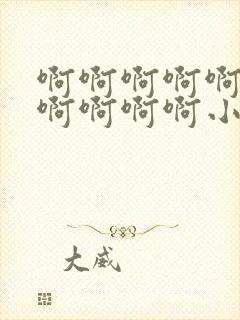 啊啊啊啊啊
啊啊啊啊小
大威